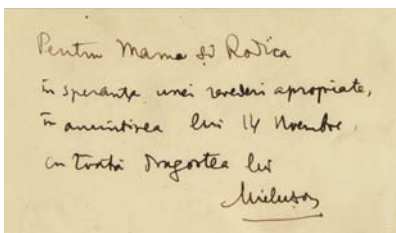 Pentru Mama și Rodica
în speranța unei revederi apropiate,
în amintirea lui 14 Noembre,
cu toată dragostea lui